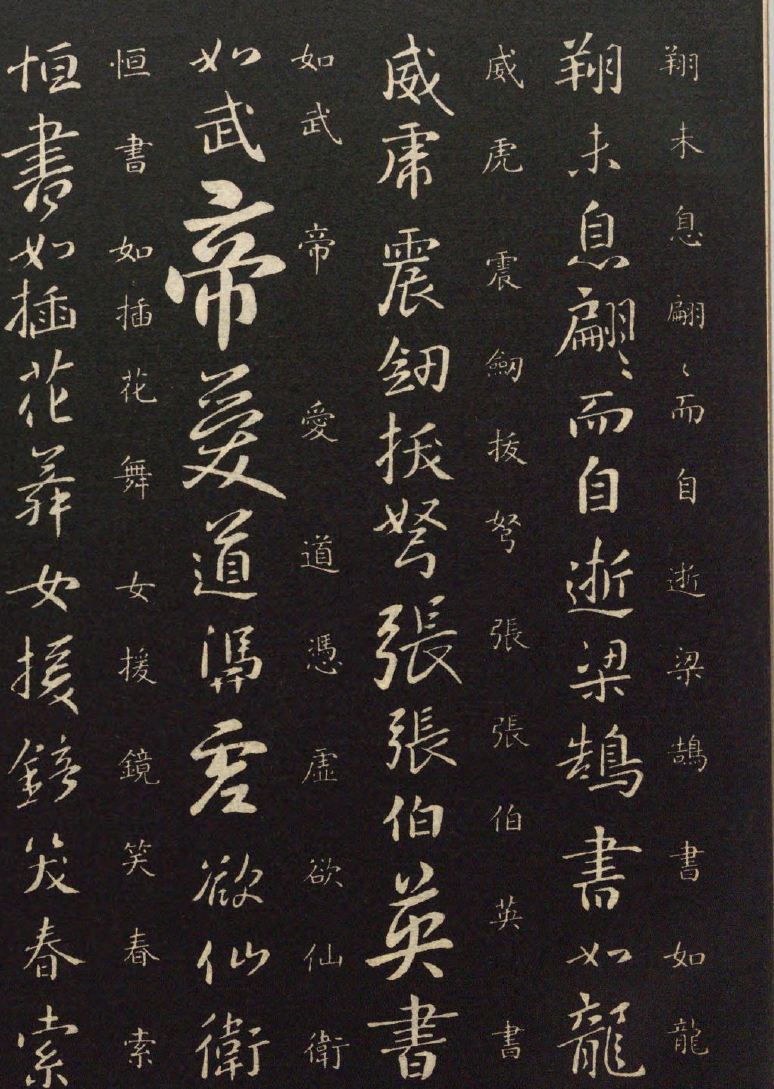 翔未息翩〻而自逝梁鵠書如龍
翔未息翩〻而自逝梁鵠書如龍
威虎震劒拔弩張張伯英書
威虎震劒拔弩張張伯英書
如武帝愛道憑虛欲仙衛
如武帝愛道憑虛欲仙衛
恒書如插花舞女援鏡笑春索
恒書如插花舞女援鏡笑春索